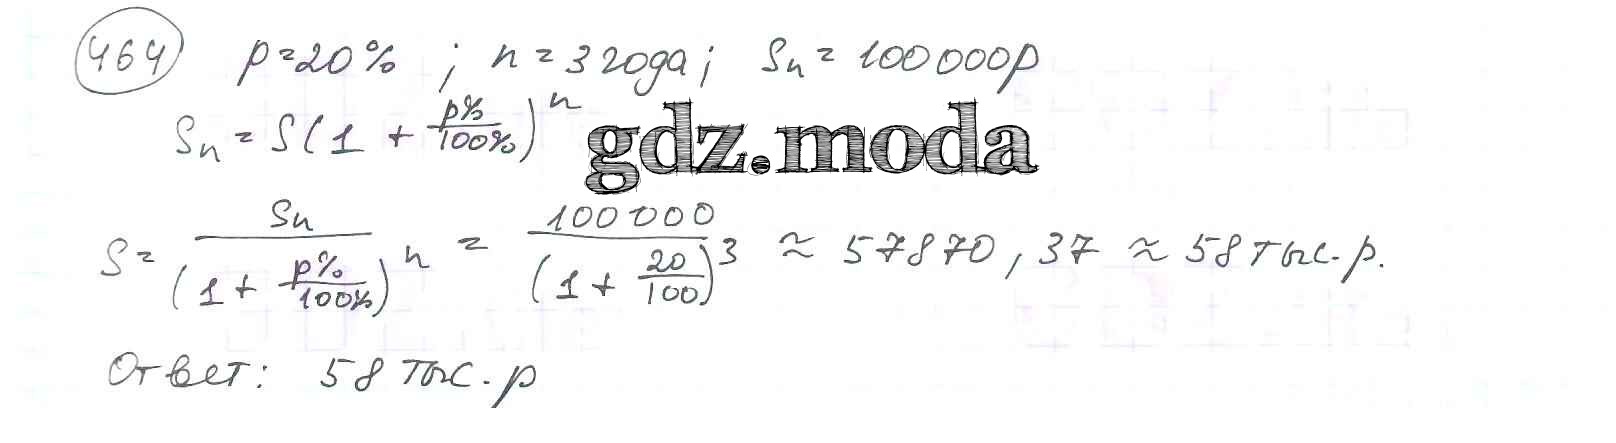 464 p=20% ; n=3 года; Sn=100000р
Sn=S(1+p%/100%)^n
gdz.moda
S=Sn/(1+p%/100%)^n=100000/(1+20/100)^3≈57870,37≈58 тыс.р.
Ответ: 58 тыс.р